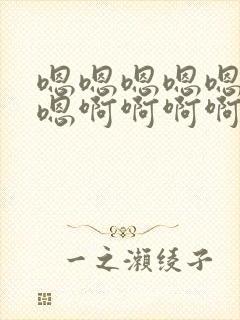 嗯嗯嗯嗯嗯
嗯啊啊啊啊
一之瀬绫子